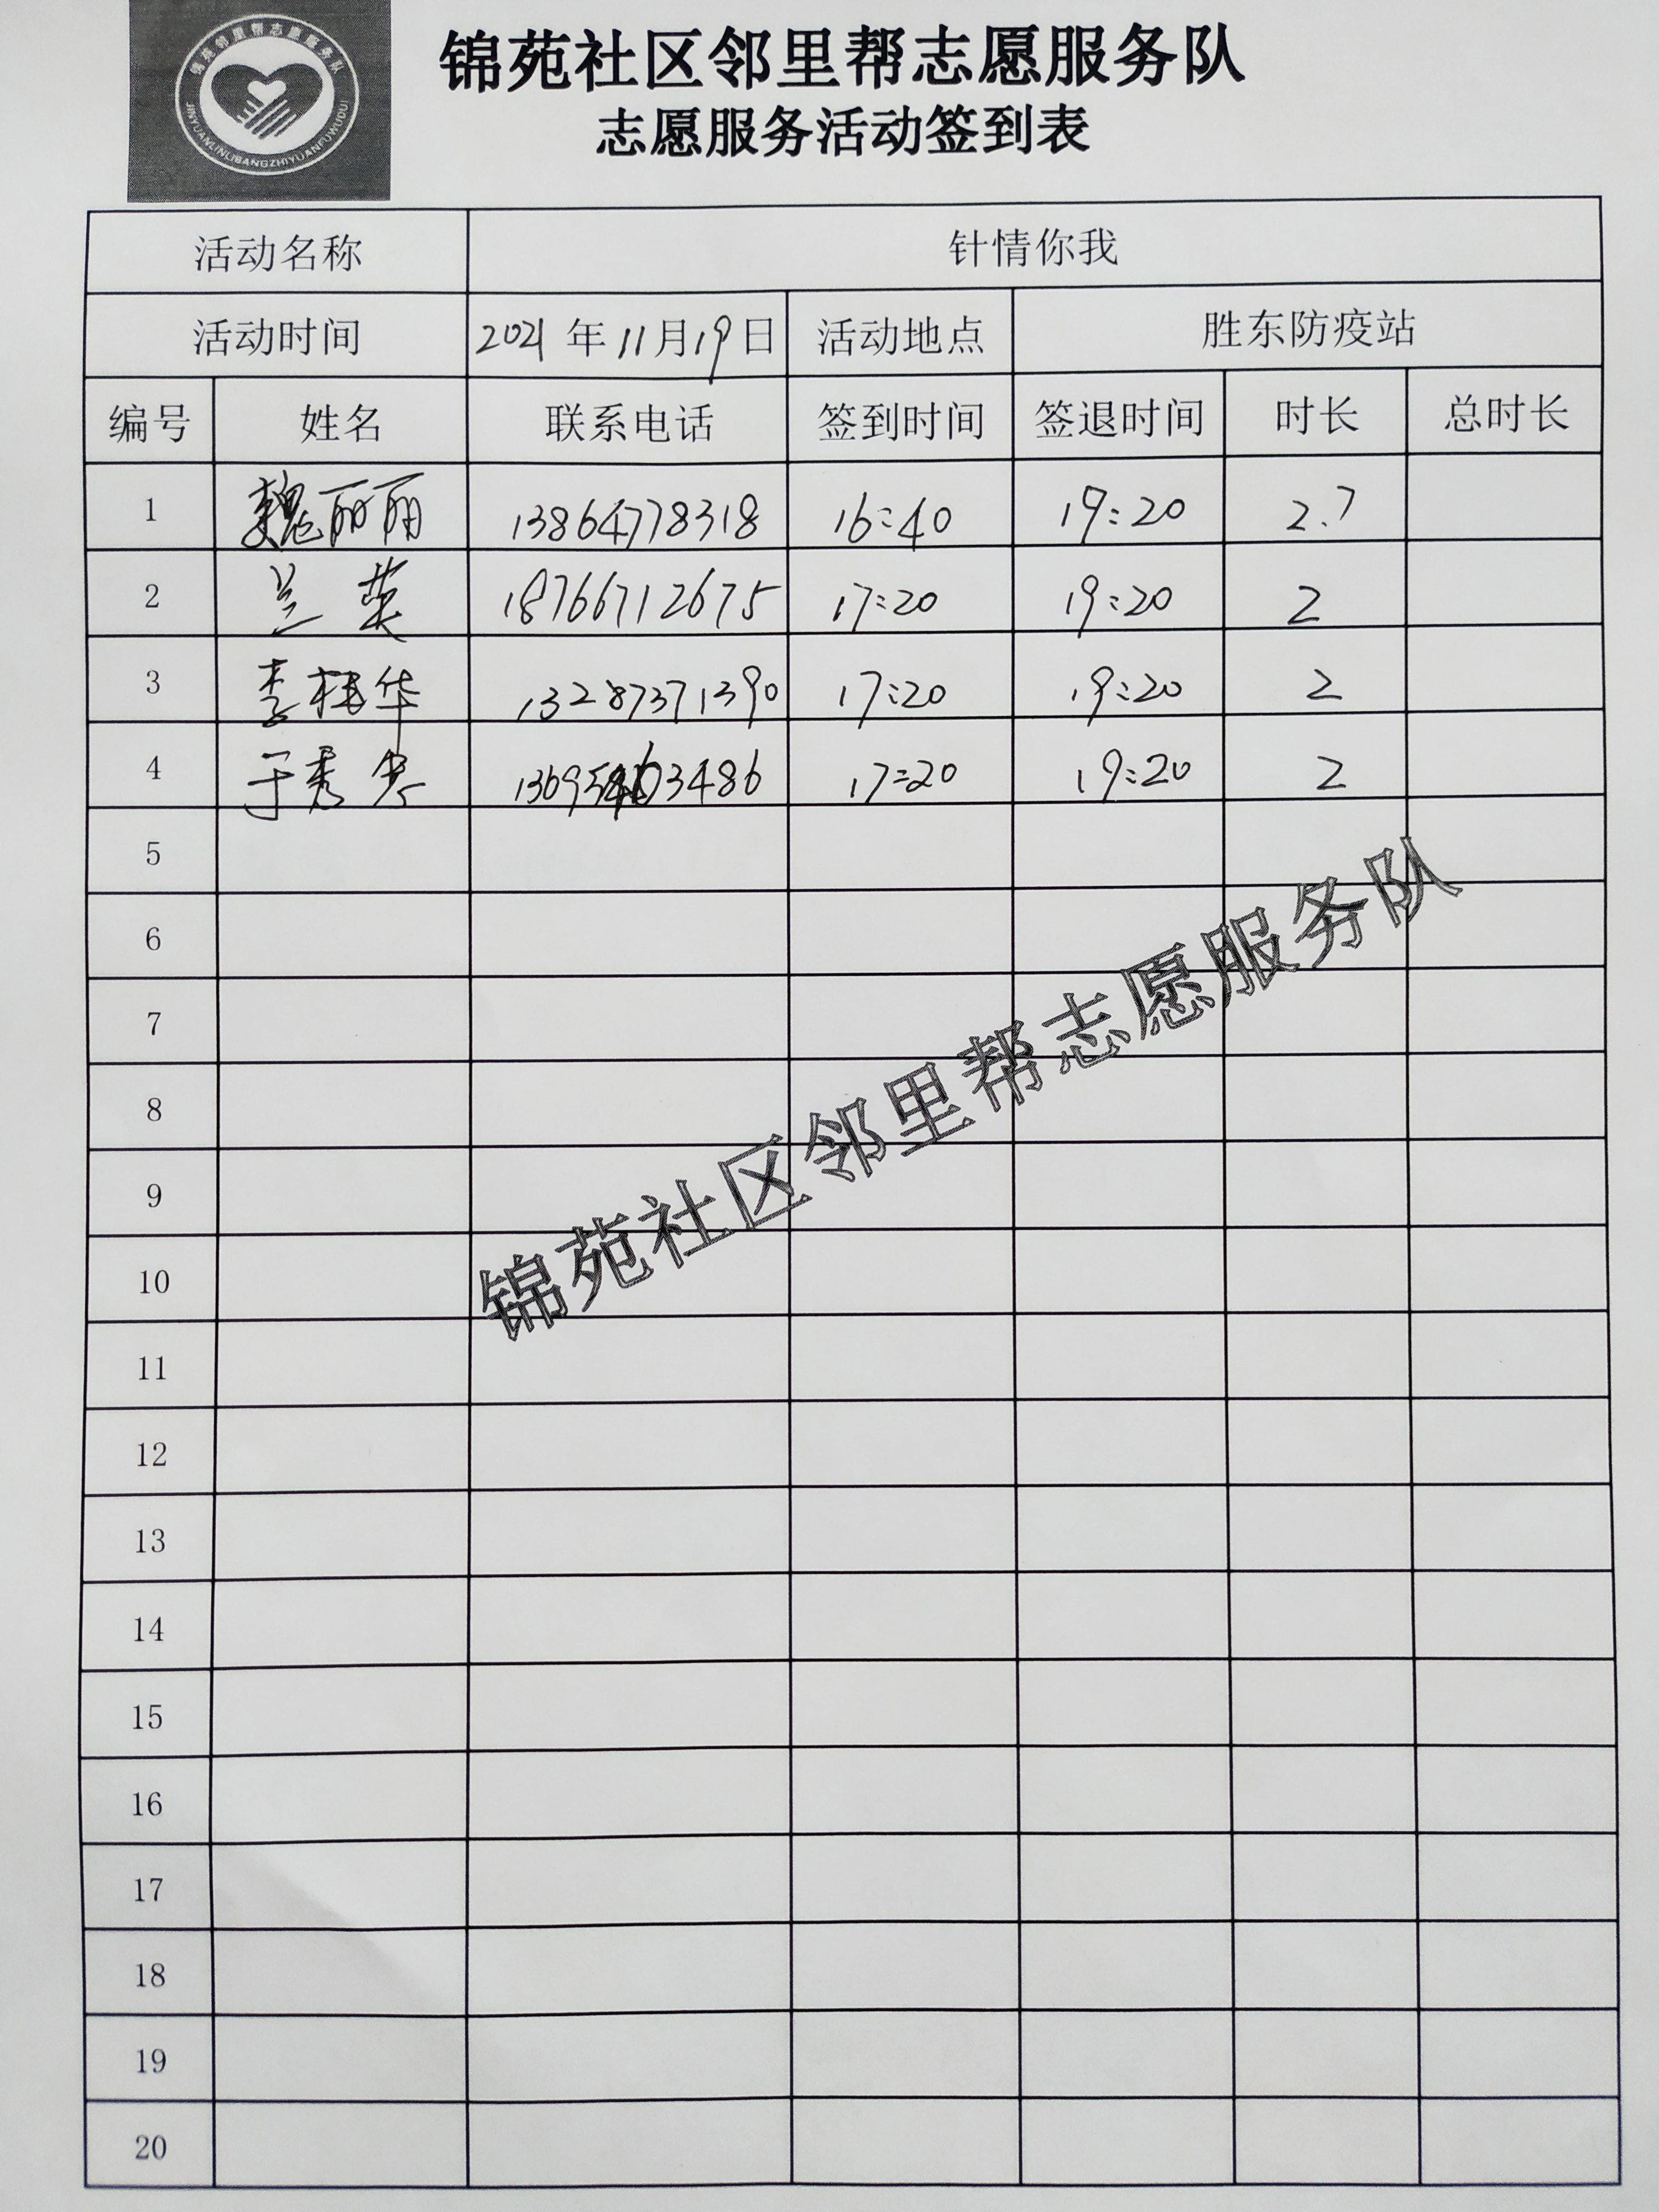 锦苑邻里帮志愿服务队
JINYUANLINLIBANGZHIYUANFUWUDUI
锦苑社区邻里帮志愿服务队
志愿服务活动签到表
活动名称 针情你我
活动时间 2021年11月19日 活动地点 胜东防疫站
编号 姓名 联系电话 签到时间 签退时间 时长 总时长
1 魏丽丽 13864778318 16:40 19:20 2.7
2 兰英 18766712675 17:20 19:20 2
3 李桂华 13287371390 17:20 19:20 2
4 于秀 17:20 19:20 2
5
6
7
8
9
10
11
12
13
14
15
16
17
18
19
20
锦苑社区邻里帮志愿服务队